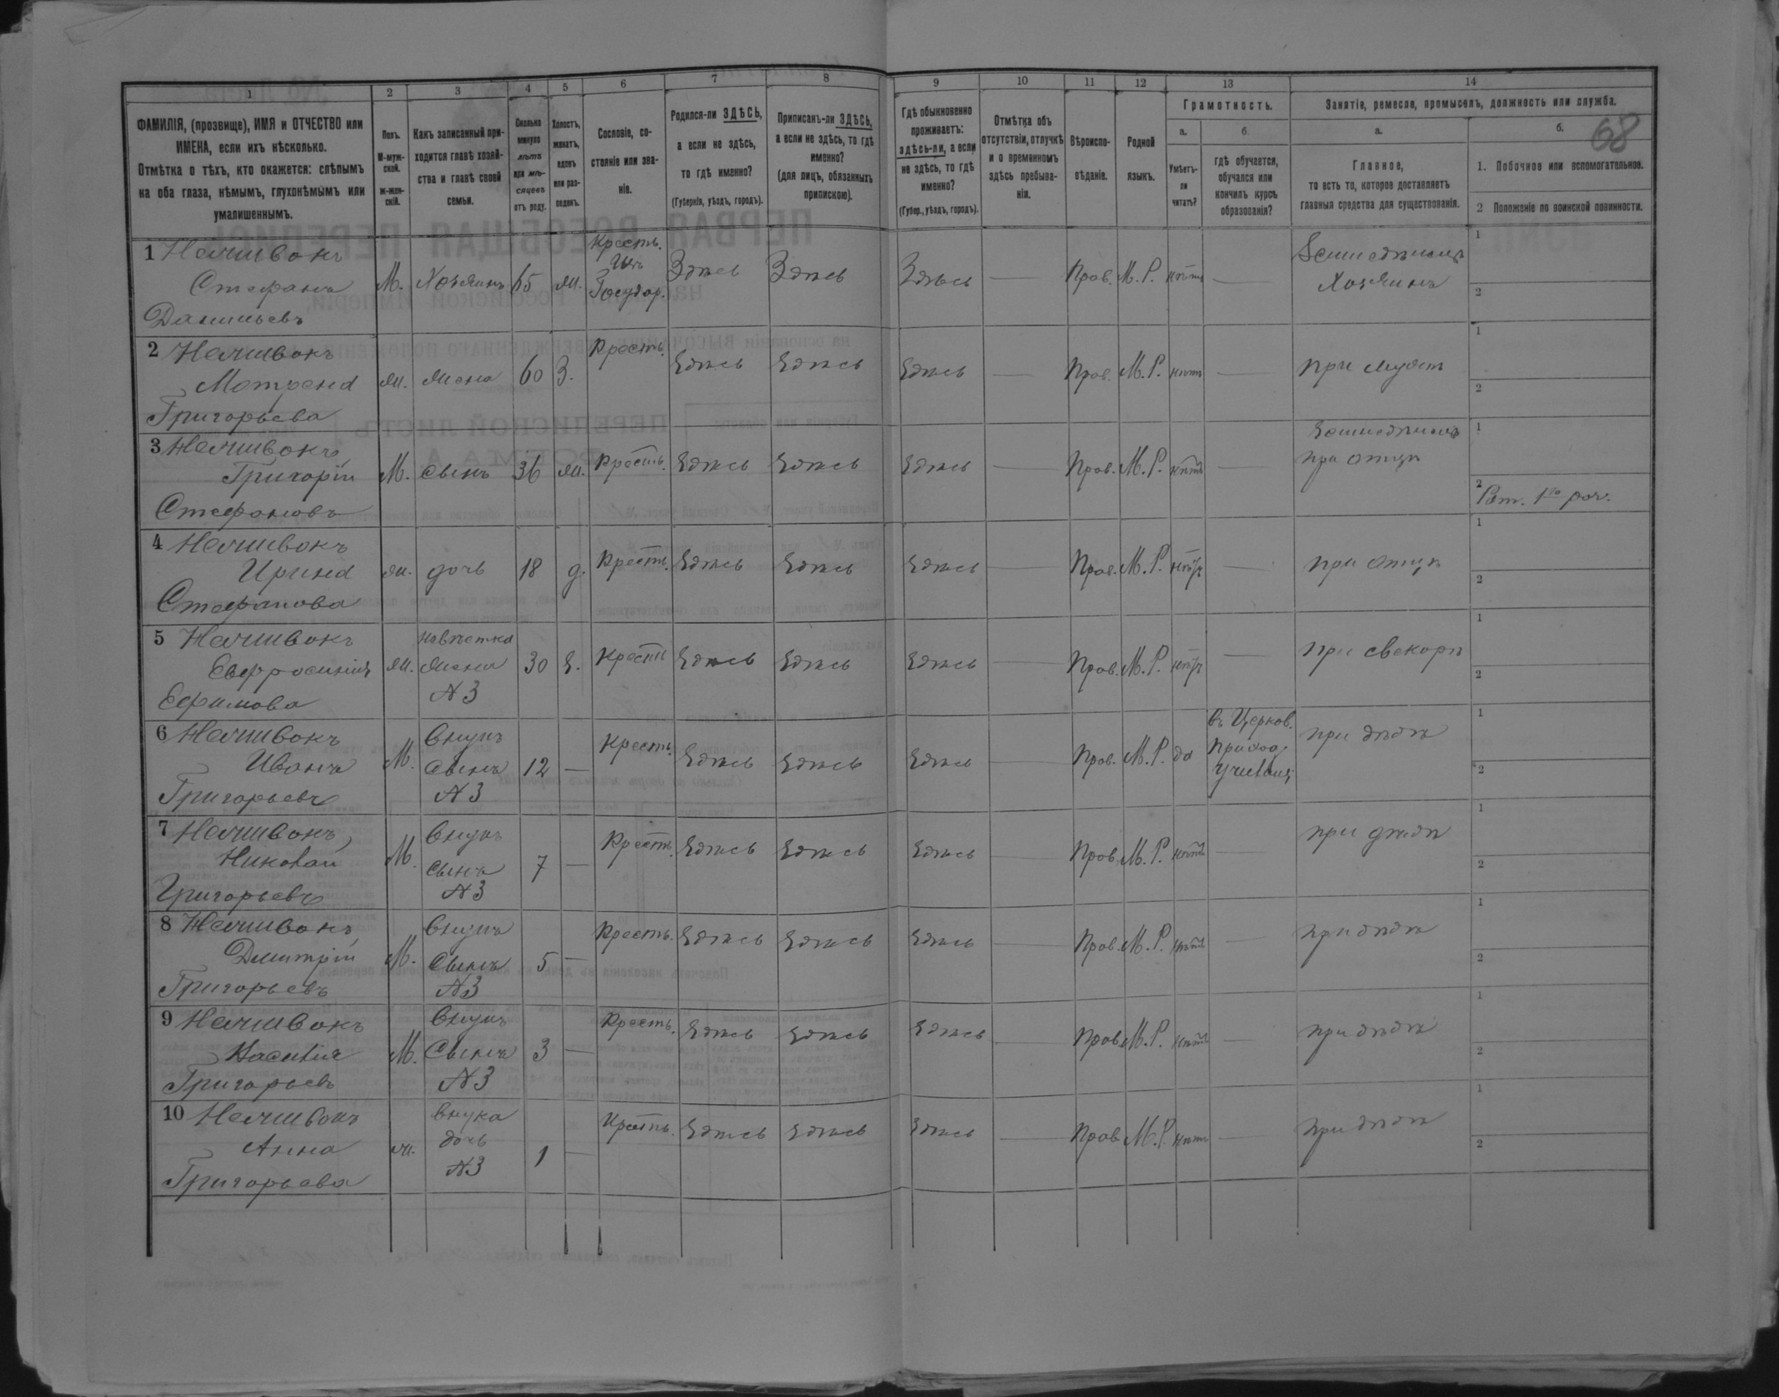 68
1 2 3 4 5 6 7 8 9 10 11 12 13 14
ФАМИЛІЯ, (прозвище), ИМЯ и ОТЧЕСТВО или
ИМЕНА, если ихъ нѣсколько.
Отмѣтка о тѣхъ, кто окажется: слѣпымъ
на оба глаза, нѣмымъ, глухонѣмымъ или
умалишеннымъ.
Полъ.
М-муж-
ской.
ж-жен-
скій.
Какъ записанный при-
ходится главѣ хозяй-
ства и главѣ своей
семьи.
Сколько
минуло
лѣтъ
или мѣ-
сяцевъ
отъ роду.
Холостъ,
женатъ,
вдовъ
или раз-
веденъ.
Сословіе, со-
стояніе или зва-
ніе.
Родился-ли ЗДѢСЬ,
а если не здѣсь,
то гдѣ именно?
(Губернія, уѣздъ, городъ).
Приписанъ-ли ЗДѢСЬ,
а если не здѣсь, то гдѣ
именно?
(для лицъ, обязанныхъ
припискою).
Гдѣ обыкновенно
проживаетъ:
здѣсь-ли, а если
не здѣсь, то гдѣ
именно?
(Губер., уѣздъ, городъ).
Отмѣтка объ
отсутствіи, отлучкѣ
и о временномъ
здѣсь пребыва-
ніи.
Вѣроиспо-
вѣданіе.
Родной
языкъ.
Грамотность.
а.
Умѣетъ-
ли
читать?
б
гдѣ обучается,
обучался или
кончилъ курсъ
образованія?
Занятіе, ремесло, промыселъ, должность или служба.
а.
Главное,
то есть то, которое доставляетъ
главныя средства для существованія.
б.
1. Побочное или вспомогательное.
2 Положеніе по воинской повинности.
1
Стефанъ
Даниловъ
М. Хозяинъ 65 ж. Крестъ. Изъ Государ. Здѣсь Здѣсь Здѣсь — Прав. М. Р. нѣтъ —
Хозяинъ
1
2
2
Матрена
Григорьева
ж. жена 60 З. Крестъ. Здѣсь Здѣсь Здѣсь — Прав. М. Р. нѣтъ — при мужѣ
1
2
3
Григорій
Стефановъ
М. сынъ 36 ж. Крестъ. Здѣсь Здѣсь Здѣсь — Прав. М. Р. нѣтъ —
при отцѣ
1
2 Рат. 1го раз.
4
Ирина
Стефанова
ж. дочь 18 д. Крестъ. Здѣсь Здѣсь Здѣсь — Прав. М. Р. нѣтъ — при отцѣ
1
2
5
Евфросинія
Ефимова
ж. невѣстка жена N3 30 З. Крестъ Здѣсь Здѣсь Здѣсь — Прав. М. Р. нѣтъ — при свекорѣ
1
2
6
Иванъ
Григорьевъ
М. Внукъ сынъ N3 12 — Крестъ. Здѣсь Здѣсь Здѣсь — Прав. М. Р. да въ Церков. приход. училищ. при дѣдѣ
1
2
7
Николай
Григорьевъ
М. Внукъ сынъ N3 7 — Крестъ. Здѣсь Здѣсь Здѣсь — Прав. М. Р. нѣтъ — при дѣдѣ
1
2
8
Дмитрій
Григорьевъ
М. Внукъ Сынъ N3 5 — Крестъ. Здѣсь Здѣсь Здѣсь — Прав. М. Р. нѣтъ — при дѣдѣ
1
2
9
Василій
Григорьевъ
М. Внукъ Сынъ N3 3 — Крестъ. Здѣсь Здѣсь Здѣсь — Прав. М. Р. нѣтъ — при дѣдѣ
1
2
10
Анна
Григорьева
ж. Внука дочь N3 1 — Крестъ. Здѣсь Здѣсь Здѣсь — Прав М. Р. нѣтъ — при дѣдѣ
1
2